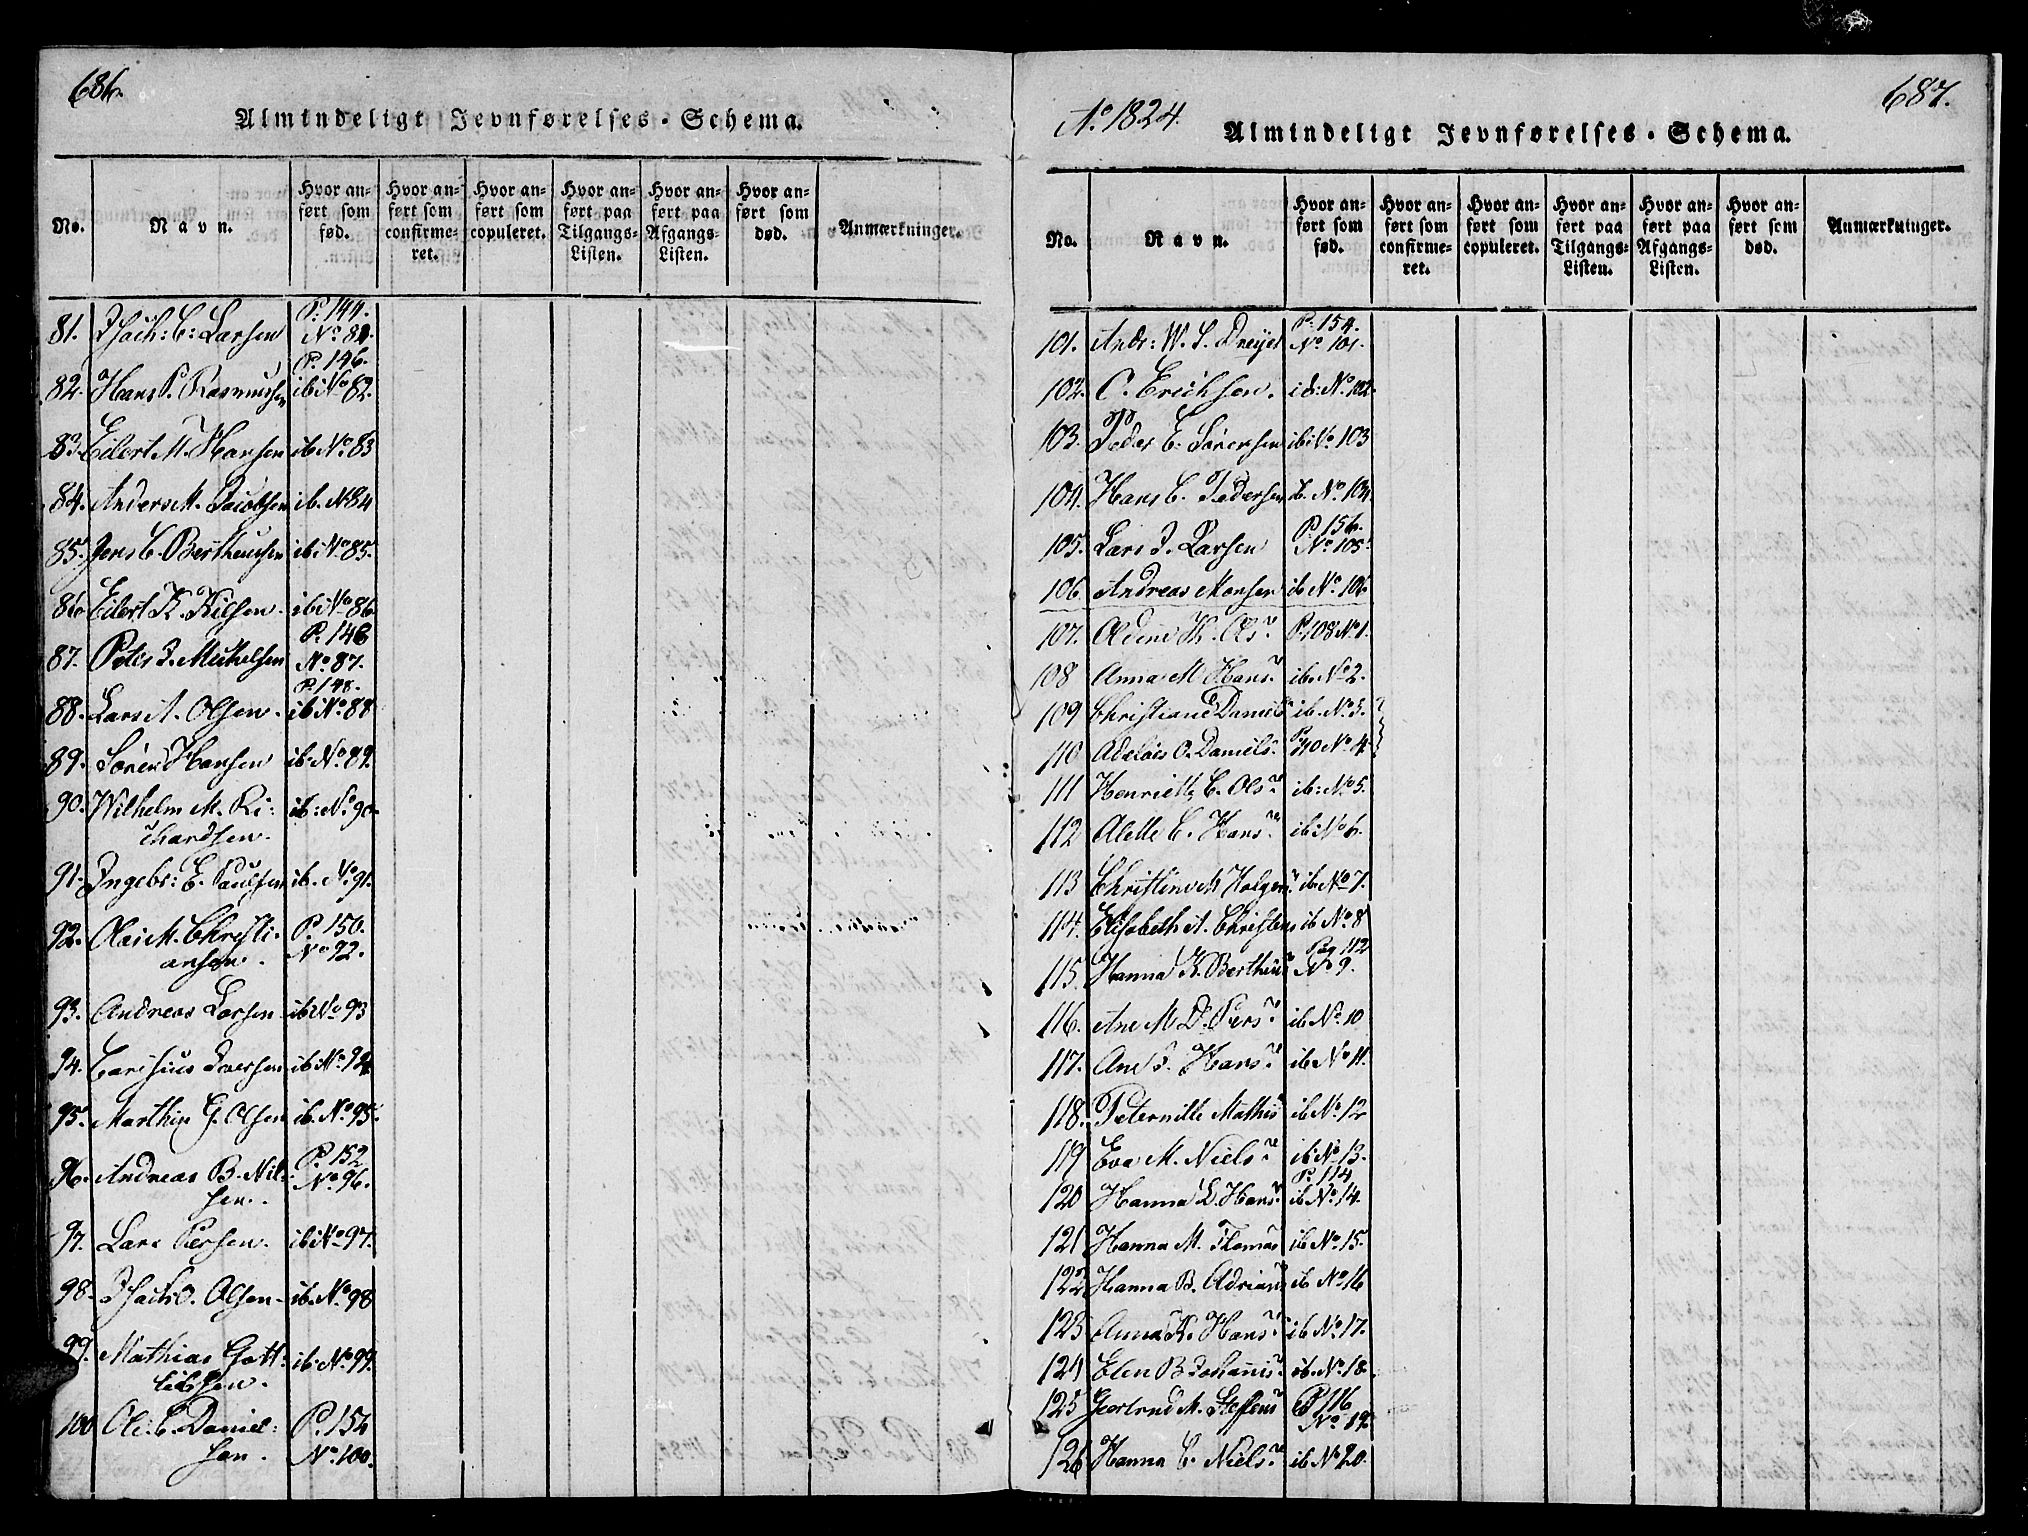 686.
Almindeligt Jevnførelses-Schema.
No.
Navn.
Hvor anført som fød.
Hvor anført som confirmeret.
Hvor anført som copuleret.
Hvor anført paa Tilgangs-Listen.
Hvor anført paa Afgangs-Listen.
Hvor anført som død.
Anmærkninger.
81. Isach: C: Larsen P. 144. No. 81.
P. 146.
82. Hans P. Rasmussen ib: No 82.
83. Eilert M. Hansen ib No. 83
84. Anders M. Jacobsen ib. No 84
85. Jens C. Bertheussen ib: No 85.
86 Eilert K. Kilsen. ib: No 86
P. 148
87. Peter J. Mickelsen No. 87.
P. 148.
88. Lars A. Olsen. ib No. 88
89. Sören Hansen ib: No. 89.
90. Wilhelm M. Ri- ib: No. 90.
chardsen.
91. Ingebr: E. Paulsen ib. No. 91.
92. Olai M. Christi- P. 150.
ansen. No 92.
93. Andreas Larsen ib: No 93
94. Carisius Iversen ib: No. 94
95. Marthin G. Olsen ib. No. 95.
P. 152
96. Andreas B. Nil- No. 96.
sen.
97. Lars Persen. ib: No 97.
98. Isach O. Olsen ib. No 98
99. Mathias Gott- ib: No. 99.
liebsen.
100 Ole: C. Daniel- P. 154
sen. No. 100.
687.
Ao. 1824.
Almindeligt Jevnførelses-Schema.
No.
Navn.
Hvor anført som fød.
Hvor anført som confirmeret.
Hvor anført som copuleret.
Hvor anført paa Tilgangs-Listen.
Hvor anført paa Afgangs-Listen.
Hvor anført som død.
Anmærkninger.
P. 154.
101. Andr: W. S. Dreyer No. 101.
102. C. Erichsen. id: No. 102.
103. Peder E. Sörensen ib: No. 103
104. Hans C. Pedersen ib. No. 104
P. 156.
105. Lars J. Larsen No. 105.
106 Andreas Monsen ib No. 106
107. Oldine K. Olsr. P. 108 No 1.
108 Anna M Hansr. ib: No 2.
109 Christiane Daniels ib. No. 3.
110 Adelois O. Daniels. P. 110 No. 4
111 Henriette C. Olsr. ib: No 5.
112 Alette C. Hansr. ib: No 6.
113 Christine M Holgers. ib: No 7.
114. Elisabeth A. Christens ib No. 8
Pag 112
115. Hanna K. Bertheus No 9.
116. Ane M D. Persr. ib No. 10
117. Ane J. Hansr. ib No 11.
118. Peternille Mathis ib No. 12
119 Eva M. Nielsr. ib: No 13.
P. 114
120 Hanna L. Hansr. ib No. 14.
121 Hanna M. Thomas ib No. 15.
122 Hanna B. Adrians ib No 16
123 Anna K. Hansr. ib No. 17.
124 Elen B Johannis. ib. No. 18.
125 Gjertrud M. Steffens P 116
No. 19.
126 Hanna C. Nielsr. ib No 20.